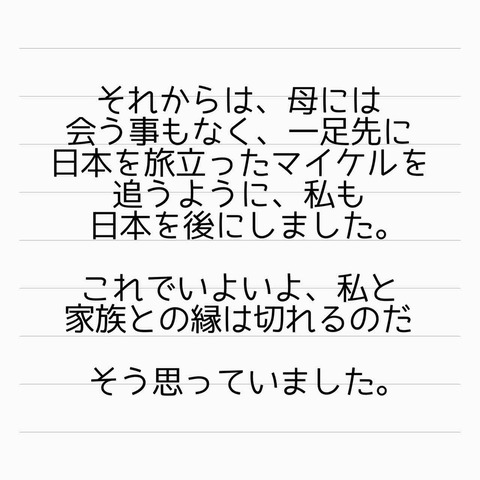 それからは、母には
会う事もなく、一足先に
日本を旅立ったマイケルを
追うように、私も
日本を後にしました。
これでいよいよ、私と
家族との縁は切れるのだ
そう思っていました。